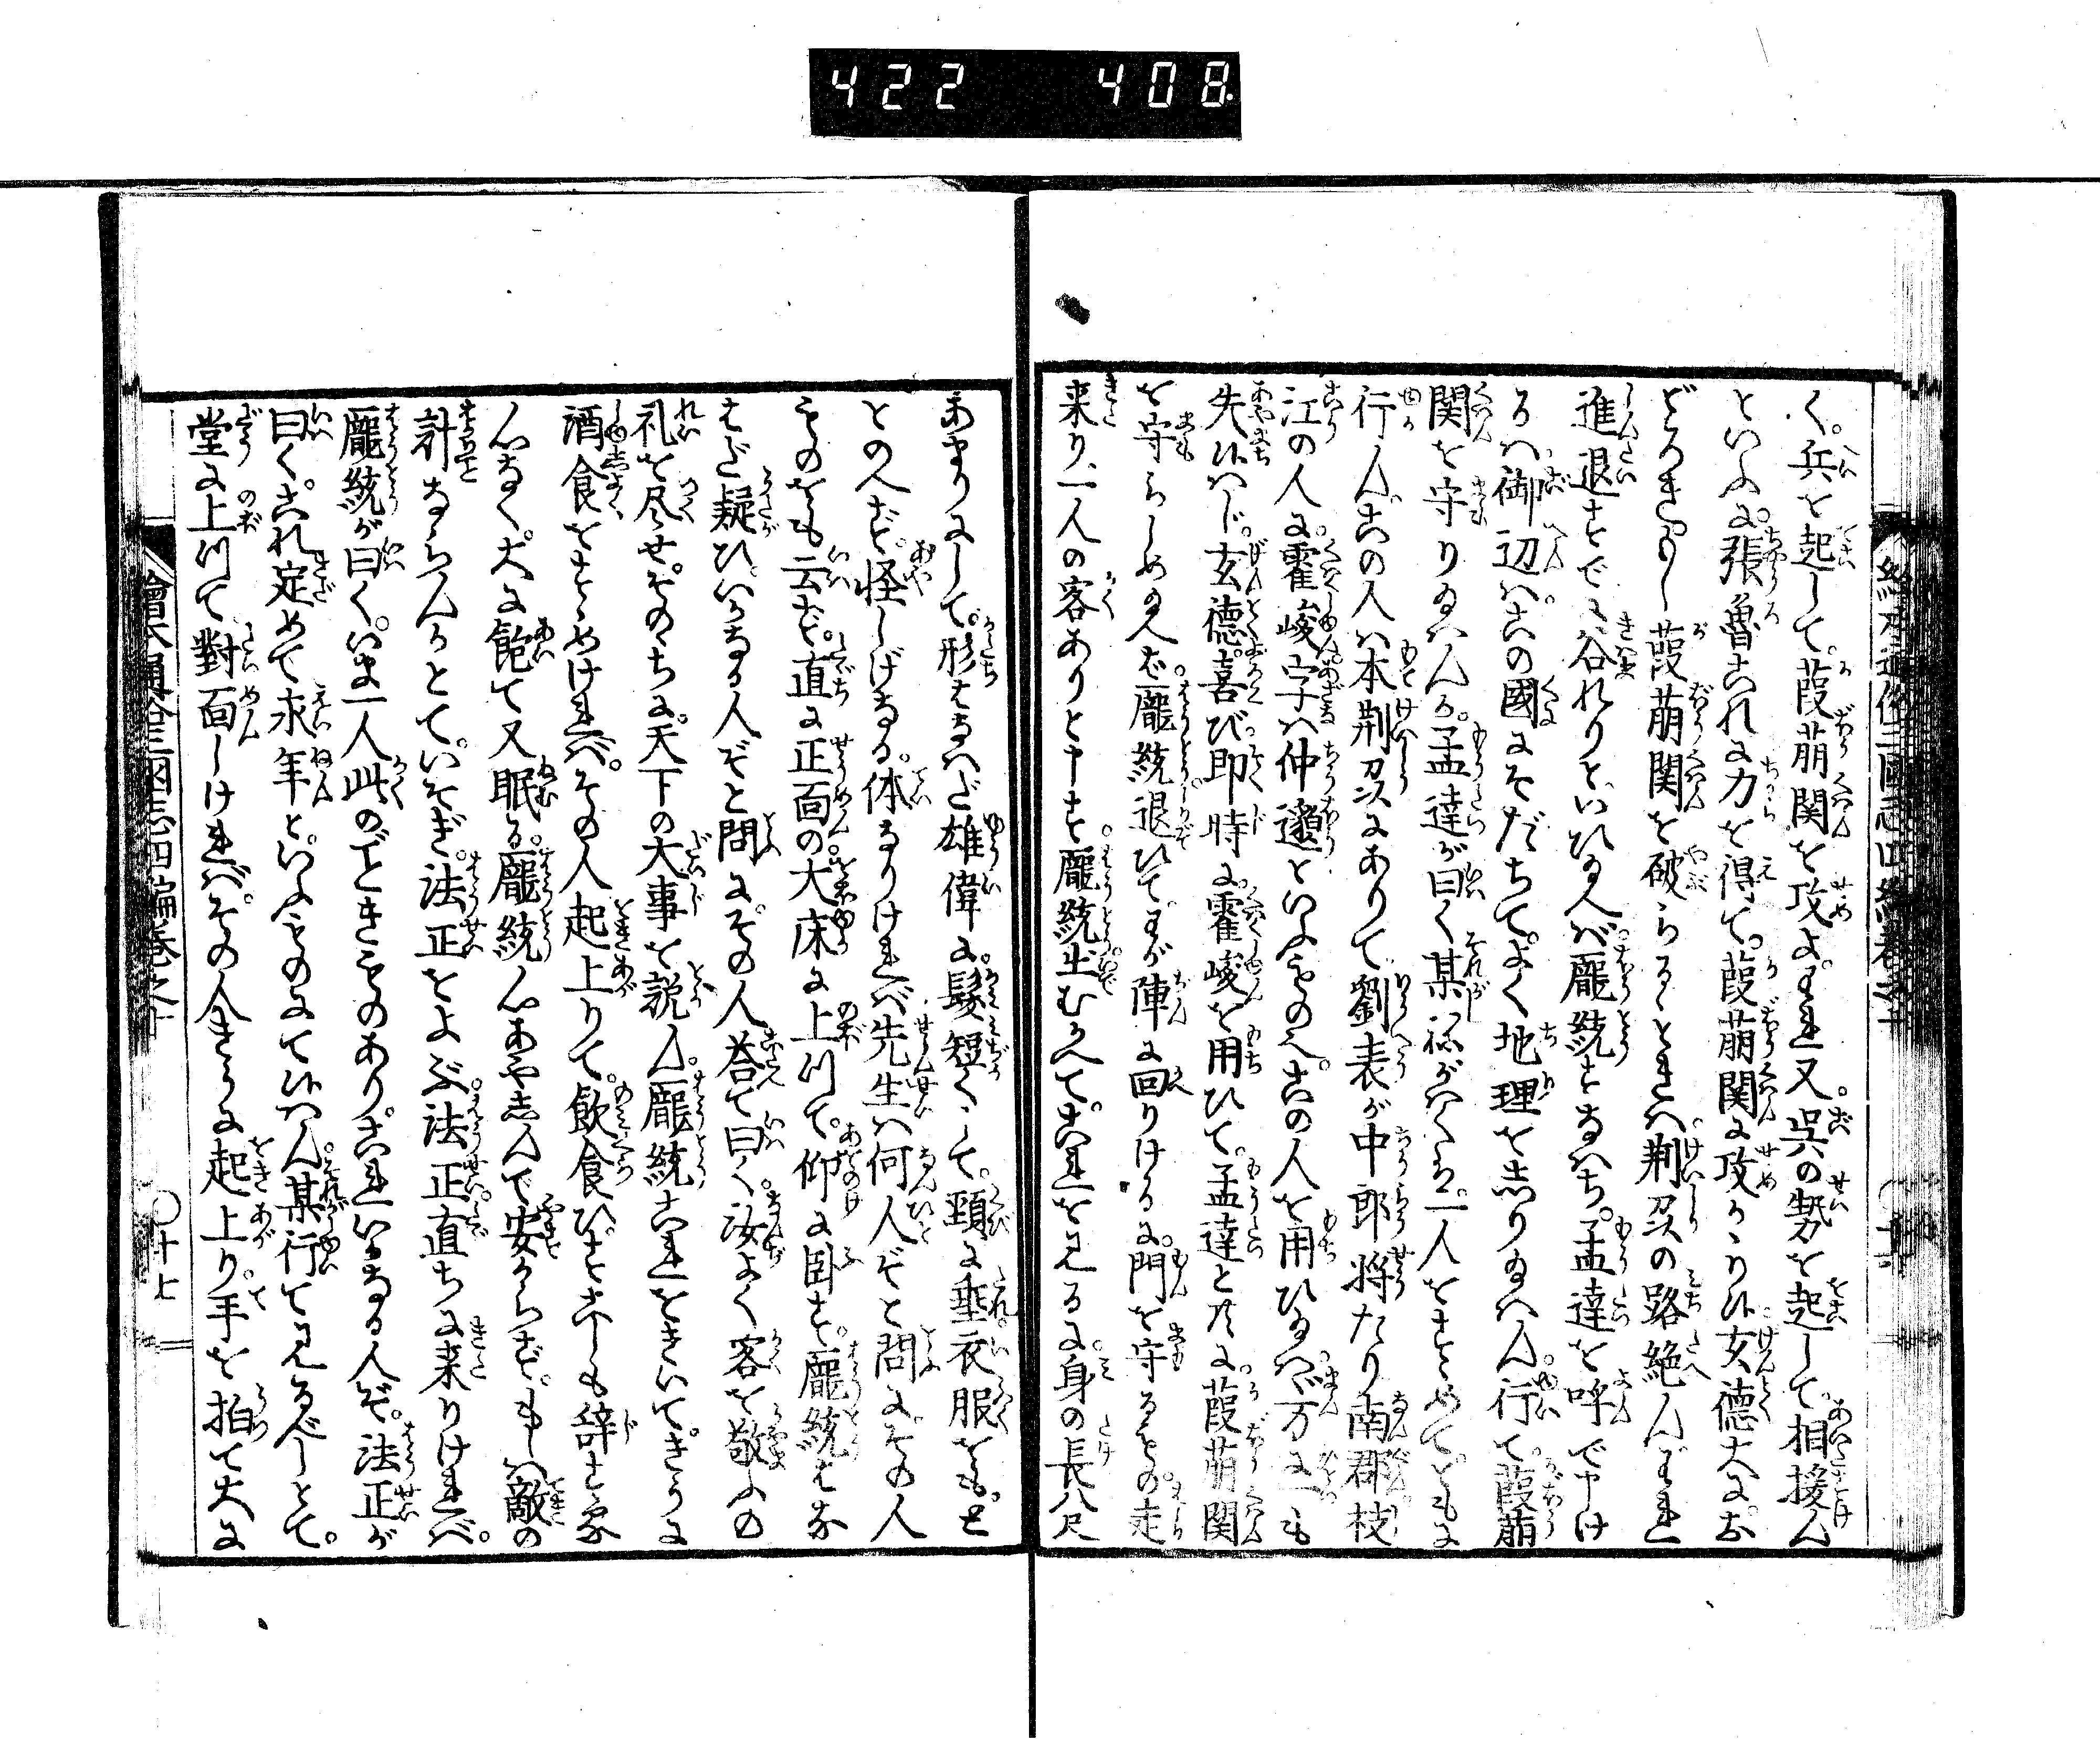 422 408
く。兵を起して。葭萌関を攻よ。われ又。呉の勢を起して。相援ん
といふに。張魯これに力を得て。葭萌関に攻かゝり候。玄徳大にお
どろき。もし葭萌関を破らるゝときハ。荆州の路絶ん。われ
進退すでに谷れりといひ給へバ。龐統すなハち。孟達を呼で申け
るハ御辺ハ。この國にそだちて。よく地理をしり給ハん。行て。葭萌
関を守り給ハんか。孟達が曰く。某願がハくは。一人をすゝめて。ともに
行ん。この人ハ本。荆州にありて。劉表が中郎将たり。南郡枝
江の人に。霍峻字ハ仲邈といふものへ。この人を用ひ給ハゞ。万に一も
失候ハじ。玄徳。喜び即時に。霍峻を用ひて。孟達と共に。葭萌関
を守らしめ給へば。龐統退ひて。わが陣に回りけるに。門を守るもの。走
来り一人の客ありと申す。龐統出むかへて。これを見るに。身の長八尺
あまりにして。形はなハだ雄偉に。髪短くして。頚に垂。衣服をも。と
との人ず。怪しげなる。体なりけれバ。先生ハ何人ぞと問に。その人
ものをも云ず。直に正面の大床に上つて。仰に臥す。龐統はな
はだ疑ひ。いかなる人ぞと問に。その人答て曰く。汝よく客を敬ふの
礼を尽せ。そのゝちに。天下の大事を説ん。龐統これをきいて。きうに
酒食をすゝめけれバ。その人起上りて。飲食ひ。すこしも辞する
心なく。大に飽て又眠る。龐統心あやしんで安からず。もしハ敵の
計ならんかとて。いそぎ。法正をよぶ。法正直ちに来りけれバ。
龐統が曰く。いま一人此のごときものあり。これいかなる人ぞ。法正が
曰く。これ定めて永年といふものにて候ハん。某行て見るべしとて。
堂に上つて對面しけれバ。その人きうに起上り。手を拍て大に
繪本通俗三国志四編巻之十
〇十七